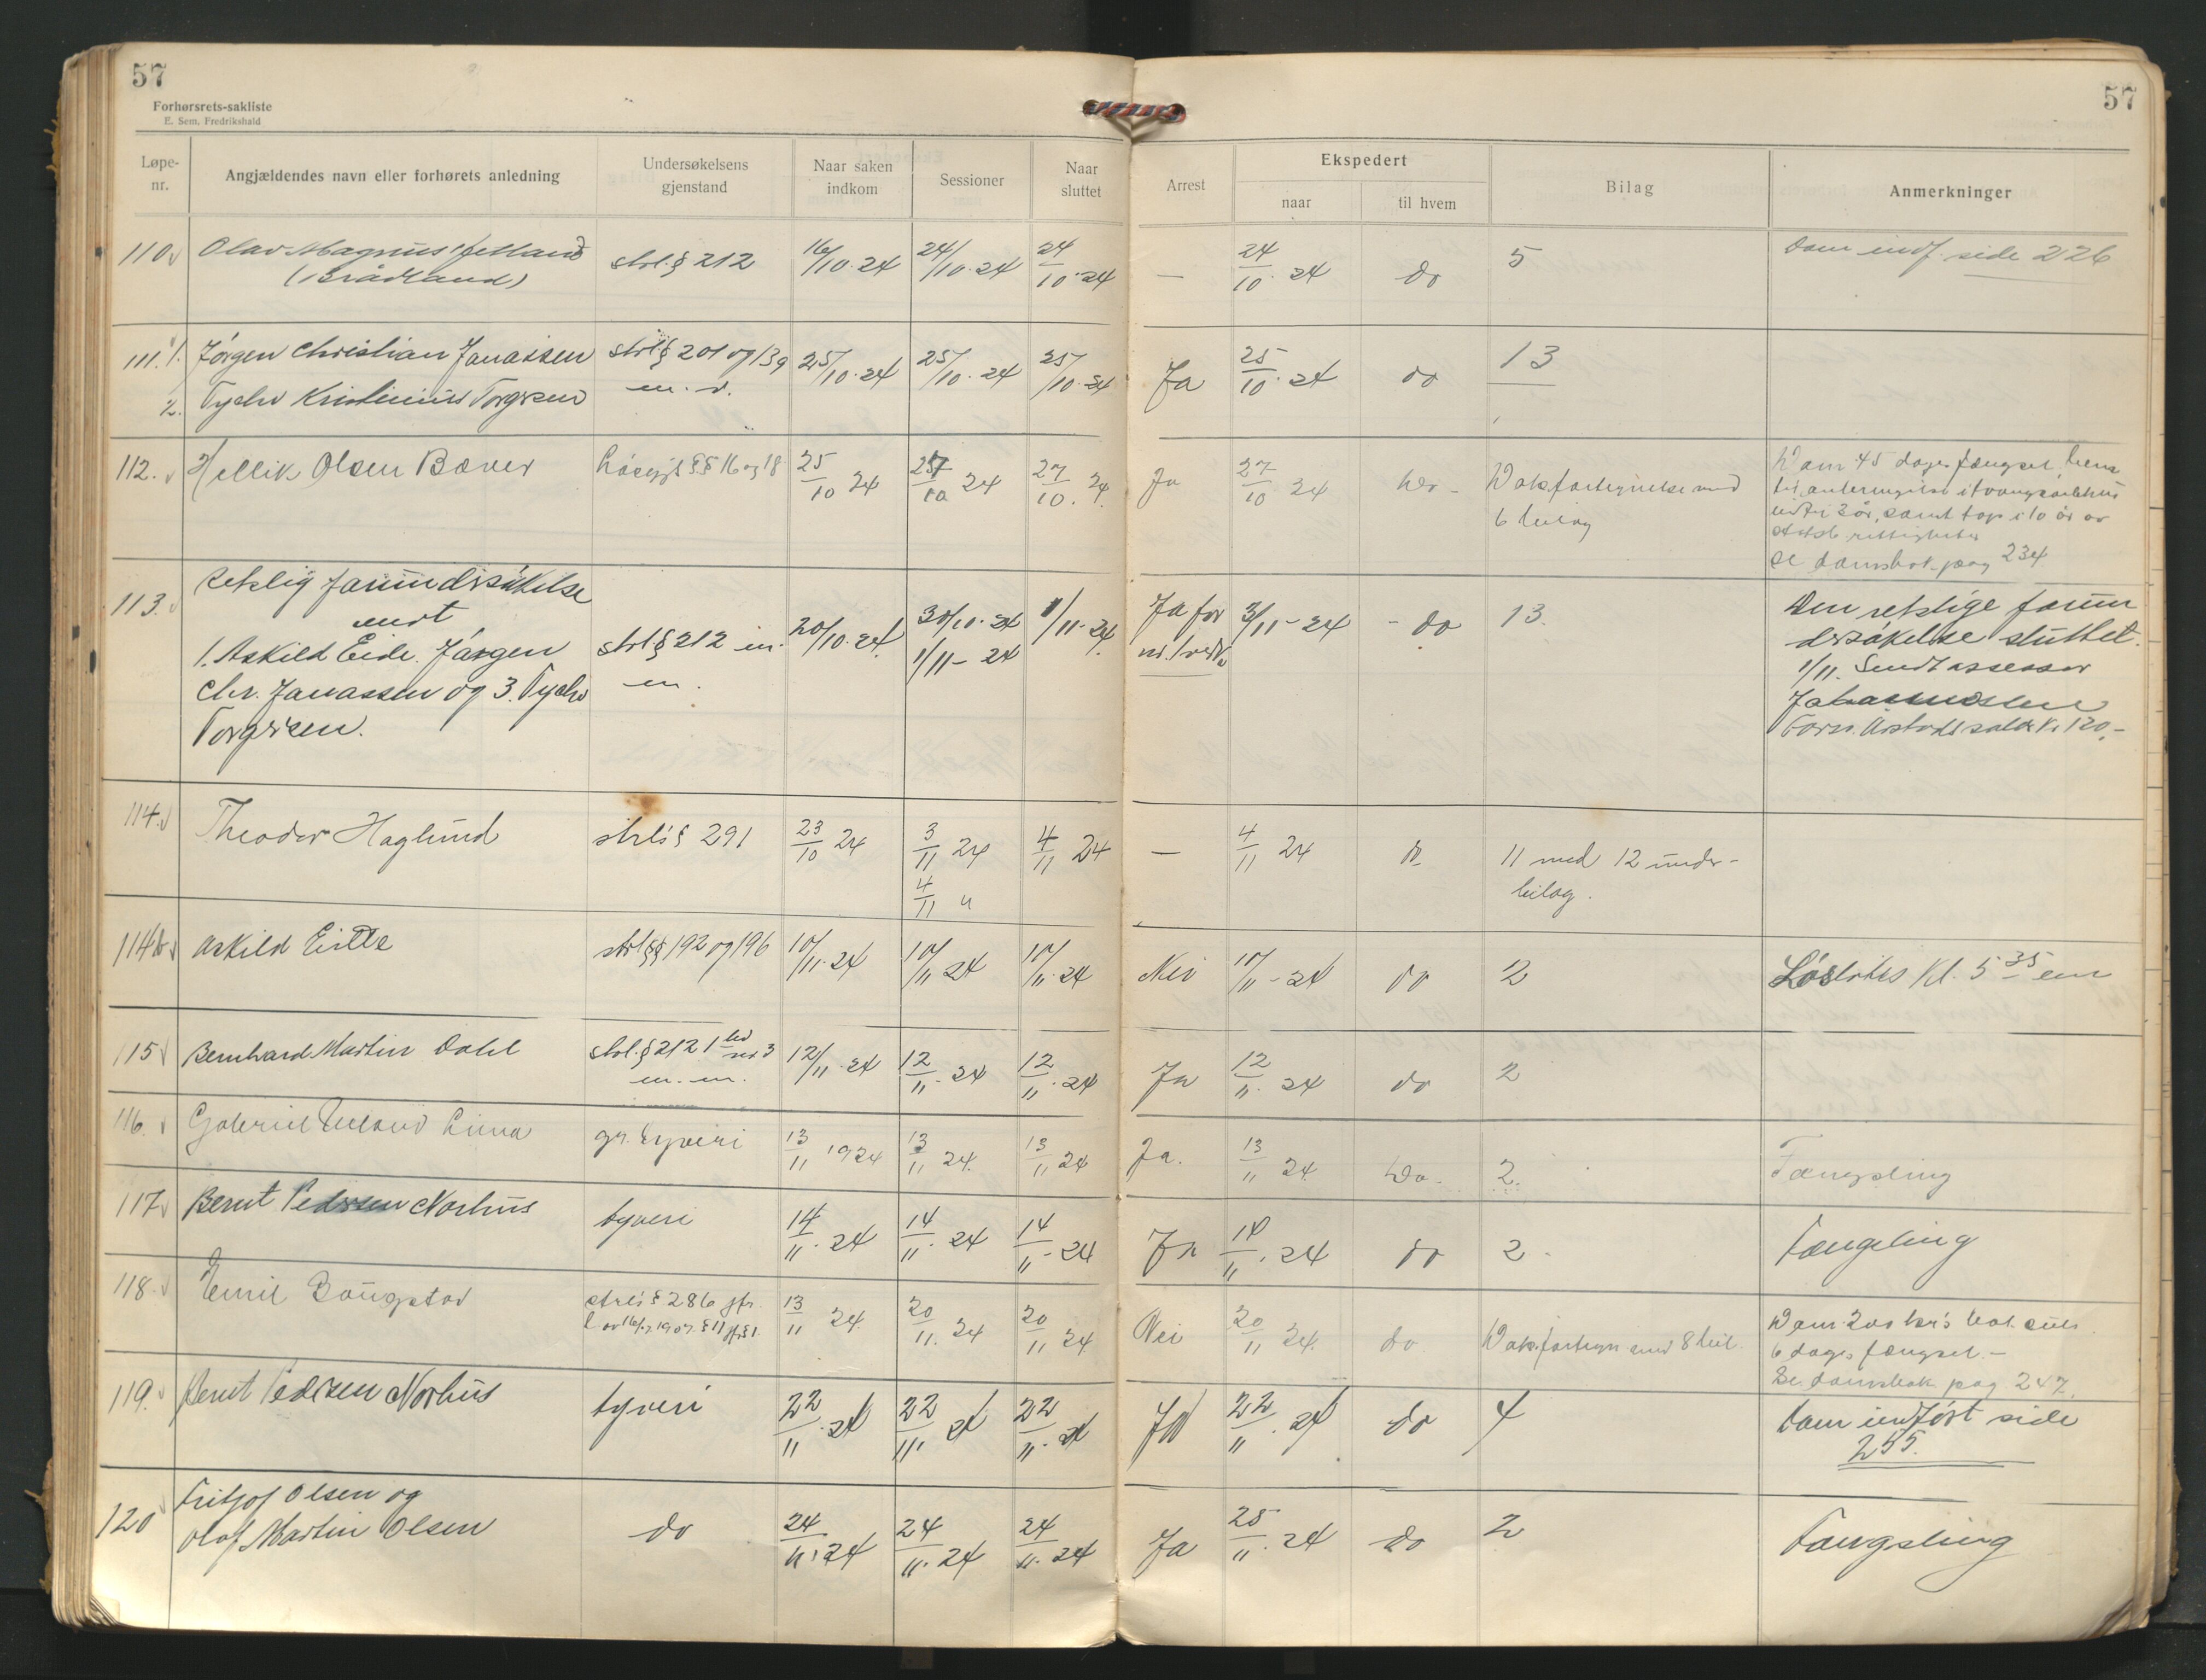 57
57
Forhørsrets-sakliste
E. Sem, Fredrikshald
Løpe-nr.
Angjældendes navn eller forhørets anledning
Undersøkelsens gjenstand
Naar saken indkom
Sessioner
Naar sluttet
Arrest
Ekspedert
naar
til hvem
Bilag
Anmerkninger
110 Olav Magnus strl. § 212 16/10-24 24/10-24 24/10-24 — 24/10-24 do 5 Dom indf. side 226
(Brådland)
111. 1. Jørgen Christian Jonassen strl § 201 og 139 25/10-24 25/10-24 25/10-24 Ja 25/10-24 do 13
2. Tycho Kristinius Torgrsen
112. Hellik Olsen Bæver Løsgjl §§ 16 og 18 25/10 24 27/10 24 27/10. 24. Ja 27/10 24 do - Dokfortegnelse med
6 bilag
Dom 45 dages fængsel
under 3 år, samt tap i 10 år av
rettigheter
se domsbok pag 234
113. Retslig forundersøkelse
mot
1. Askild Eide. Jørgen strl § 212 m. 20/10-24. 30/10-24 1/11-24. Ja for 3/11-24 - do 13.
m. 1/11-24
Chr. Jonassen og 3. Tycho
Torgrsen.
Den retslige forun
dersøkelse sluttet.
1/11. Sendt assessor
Johannesen
Kr 120.-
114. Theodor Haglund strls § 291 23/10 24 3/11 24 4/11 24 — 4/11 24 do 11 med 12 under-
4/11 " bilag.
114b Askild Eide strl §§ 192 og 196 10/11-24 10/11 24 10/11-24 Nei 10/11-24 do 2 Løslates Kl. 5 35 em
115 Bernhard Martin Dahl strl. § 212 1 led nr 3 12/11-24 12/11-24 12/11-24 Ja 12/11-24 do 2
m.m.
116. Gabriel Ueland Lima gr. tyveri 13/11 1924 13/11 24. 13/11 24 Ja. 13/11 24. Do. 2. Fængsling
117 Bernt Pedersen Norhus tyveri 14/11-24 14/11-24 14/11-24 Ja 14/11-24 do 2 - Fængsling
118. Emil Bougstad strls § 286 jfr. 13/11 24. 20/11. 24 20/11 24 Nei 20/11 24. do Dokfortegn. med 8 bil.
1907 § 11 jfr § 1
Dom: 200 kr's bot
6 dages fængsel. -
Se domsbok pag 247.
119. Bernt Pedersen Norhus tyveri 22/11-24 22/11-24 22/11-24 Ja 22/11-24 do 4 Dom indført side
255.
120 Fritjof Olsen og
Olaf Martin Olsen do 24/11-24 24/11-24 24/11-24 Ja 25/11-24 do 2 Fængsling